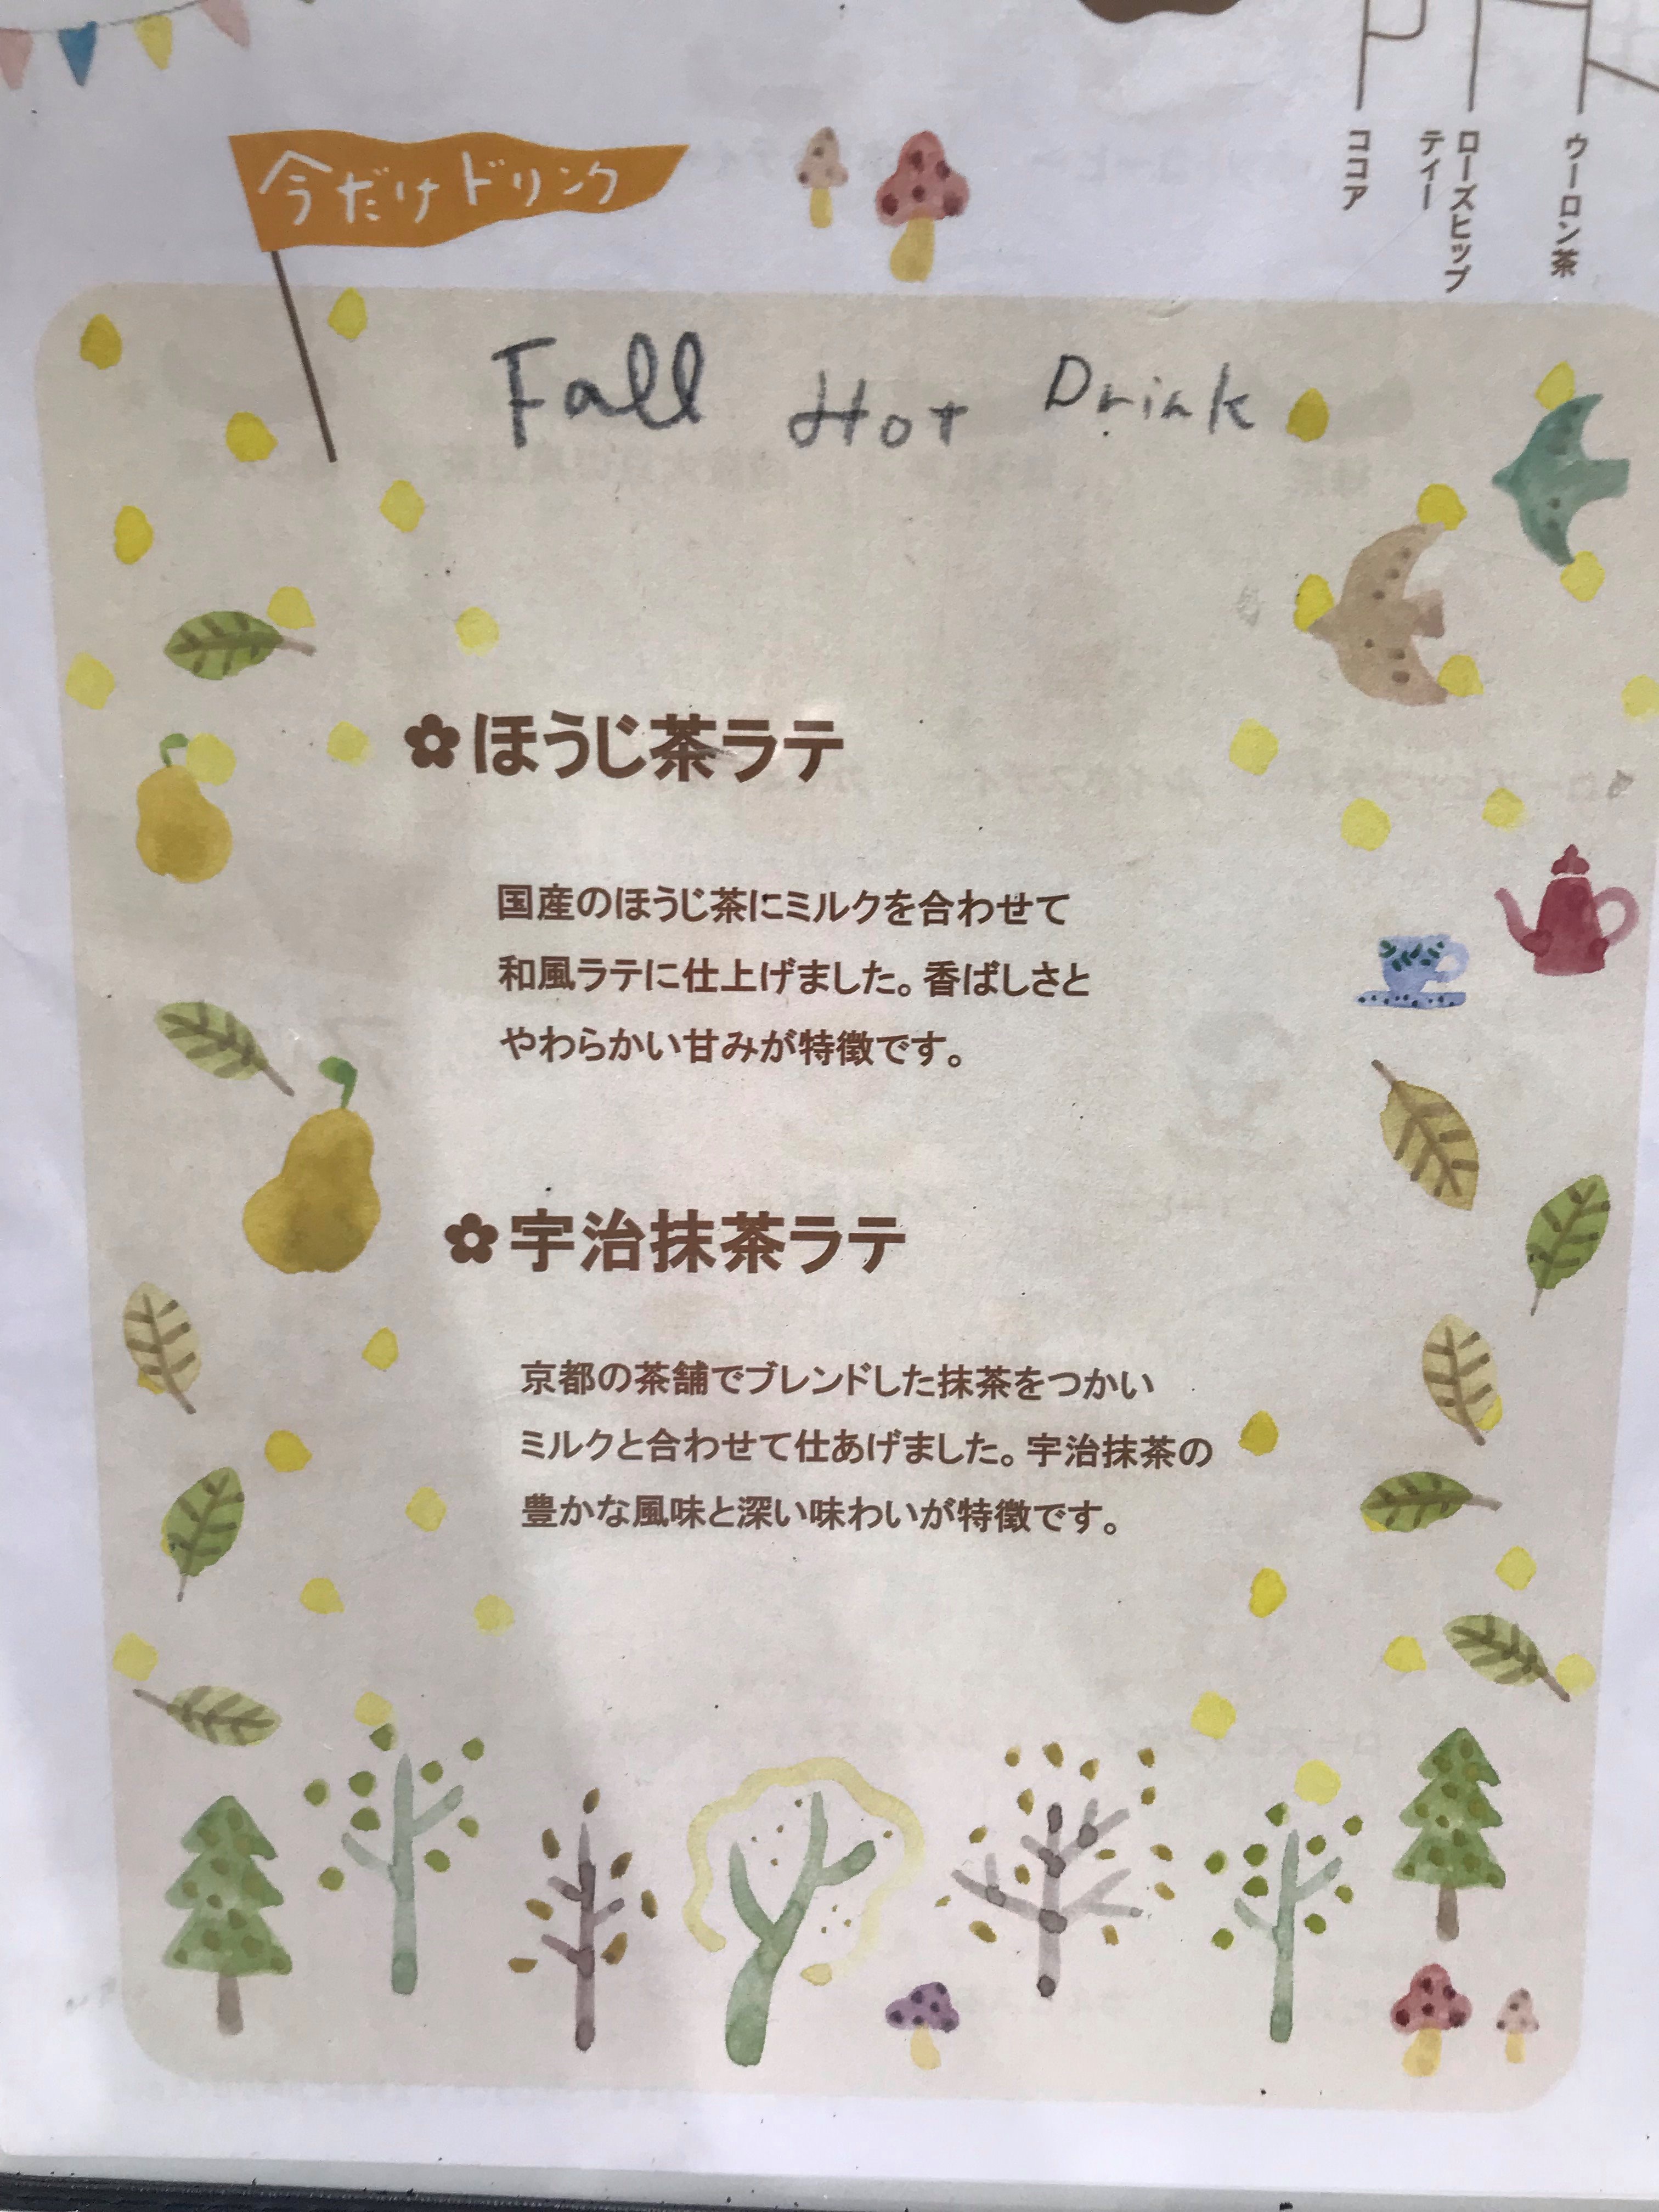 今だけドリンク
ウーロン茶
ローズヒップ
ティー
ココア
Fall Hot Drink
ほうじ茶ラテ
国産のほうじ茶にミルクを合わせて
和風ラテに仕上げました。香ばしさと
やわらかい甘みが特徴です。
宇治抹茶ラテ
京都の茶舗でブレンドした抹茶をつかい
ミルクと合わせて仕あげました。宇治抹茶の
豊かな風味と深い味わいが特徴です。